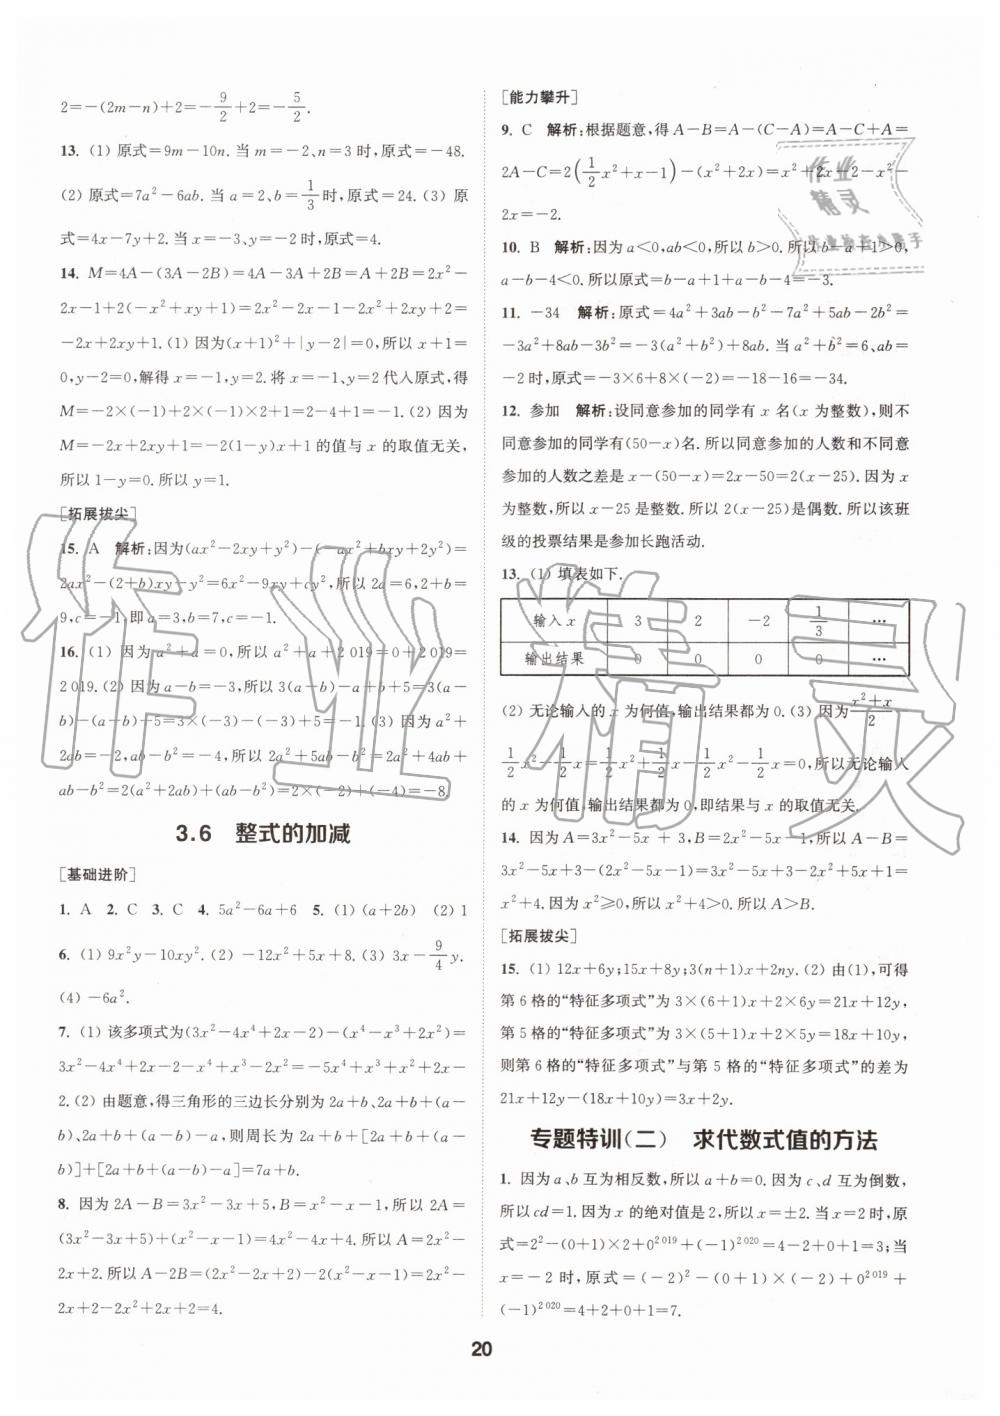 2=-(2m-n)+2=-9/2+2=-5/2.
13. (1) 原式=9m-10n. 当 m=-2、n=3 时,原式=-48.
(2) 原式=7a²-6ab. 当 a=2、b=1/3 时,原式=24. (3) 原
式=4x-7y+2. 当 x=-3、y=-2 时,原式=4.
14. M=4A-(3A-2B)=4A-3A+2B=A+2B=2x²-
2x-1+2(-x²+xy+1)=2x²-2x-1-2x²+2xy+2=
-2x+2xy+1. (1) 因为(x+1)²+|y-2|=0,所以 x+1=
0,y-2=0,解得 x=-1,y=2. 将 x=-1、y=2代入原式,得
M=-2×(-1)+2×(-1)×2+1=2-4+1=-1. (2) 因为
M=-2x+2xy+1=-2(1-y)x+1 的值与 x 的取值无关,
所以 1-y=0. 所以 y=1.
[拓展拔尖]
15. A 解析:因为(ax²-2xy+y²)-(-ax²+bxy+2y²)=
2ax²-(2+b)xy-y²=6x²-9xy+cy²,所以 2a=6,2+b=
9,c=-1,即 a=3,b=7,c=-1.
16. (1) 因为 a²+a=0,所以 a²+a+2 019=0+2 019=
2 019. (2) 因为 a-b=-3,所以 3(a-b)-a+b+5=3(a-
b)-(a-b)+5=3×(-3)-(-3)+5=-1. (3) 因为 a²+
2ab=-2,ab-b²=-4,所以 2a²+5ab-b²=2a²+4ab+
ab-b²=2(a²+2ab)+(ab-b²)=2×(-2)+(-4)=-8.
3.6 整式的加减
[基础进阶]
1. A 2. C 3. C 4. 5a²-6a+6 5. (1) (a+2b) (2) 1
6. (1) 9x²y-10xy². (2) -12x²+5x+8. (3) 3x-9/4y.
(4) -6a².
7. (1) 该多项式为(3x²-4x⁴+2x-2)-(x⁴-x³+2x²)=
3x²-4x⁴+2x-2-x⁴+x³-2x²=-5x⁴+x³+x²+2x-
2. (2) 由题意,得三角形的三边长分别为 2a+b、2a+b+(a-
b)、2a+b+(a-b)-a,则周长为 2a+b+[2a+b+(a-
b)]+[2a+b+(a-b)-a]=7a+b.
8. 因为 2A-B=3x²-3x+5,B=x²-x-1,所以 2A=
(3x²-3x+5)+(x²-x-1)=4x²-4x+4. 所以 A=2x²-
2x+2. 所以 A-2B=(2x²-2x+2)-2(x²-x-1)=2x²-
2x+2-2x²+2x+2=4.
[能力攀升]
9. C 解析:根据题意,得 A-B=A-(C-A)=A-C+A=
2A-C=2(1/2x²+x-1)-(x²+2x)=x²+2x-2-x²-
2x=-2.
10. B 解析:因为 a<0,ab<0,所以 b>0. 所以 b-a+1>0,
a-b-4<0. 所以原式=b-a+1+a-b-4=-3.
11. -34 解析:原式=4a²+3ab-b²-7a²+5ab-2b²=
-3a²+8ab-3b²=-3(a²+b²)+8ab. 当 a²+b²=6、ab=
-2 时,原式=-3×6+8×(-2)=-18-16=-34.
12. 参加 解析:设同意参加的同学有 x 名(x 为整数),则不
同意参加的同学有(50-x)名. 所以同意参加的人数和不同意
参加的人数之差是 x-(50-x)=2x-50=2(x-25). 因为 x
为整数,所以 x-25 是整数. 所以 2(x-25)是偶数. 所以该班
级的投票结果是参加长跑活动.
13. (1) 填表如下.
输入 x 3 2 -2 1/3 …
输出结果 0 0 0 0 …
(2) 无论输入的 x 为何值,输出结果都为 0. (3) 因为(x²+x)/2-
1/2x²-1/2x=1/2x²+1/2x-1/2x²-1/2x=0,所以无论输入
的 x 为何值,输出结果都为 0,即结果与 x 的取值无关.
14. 因为 A=3x²-5x+3,B=2x²-5x-1,所以 A-B=
3x²-5x+3-(2x²-5x-1)=3x²-5x+3-2x²+5x+1=
x²+4. 因为 x²≥0,所以 x²+4>0. 所以 A>B.
[拓展拔尖]
15. (1) 12x+6y;15x+8y;3(n+1)x+2ny. (2) 由(1),可得
第 6 格的“特征多项式”为 3×(6+1)x+2×6y=21x+12y,
第 5 格的“特征多项式”为 3×(5+1)x+2×5y=18x+10y,
则第 6 格的“特征多项式”与第 5 格的“特征多项式”的差为
21x+12y-(18x+10y)=3x+2y.
专题特训(二) 求代数式值的方法
1. 因为 a、b 互为相反数,所以 a+b=0. 因为 c、d 互为倒数,
所以 cd=1. 因为 x 的绝对值是 2,所以 x=±2. 当 x=2 时,原
式=2²-(0+1)×2+0²⁰¹⁹+(-1)²⁰²⁰=4-2+0+1=3;当
x=-2 时,原式=(-2)²-(0+1)×(-2)+0²⁰¹⁹+
(-1)²⁰²⁰=4+2+0+1=7.
20
作业
精灵
作业精灵